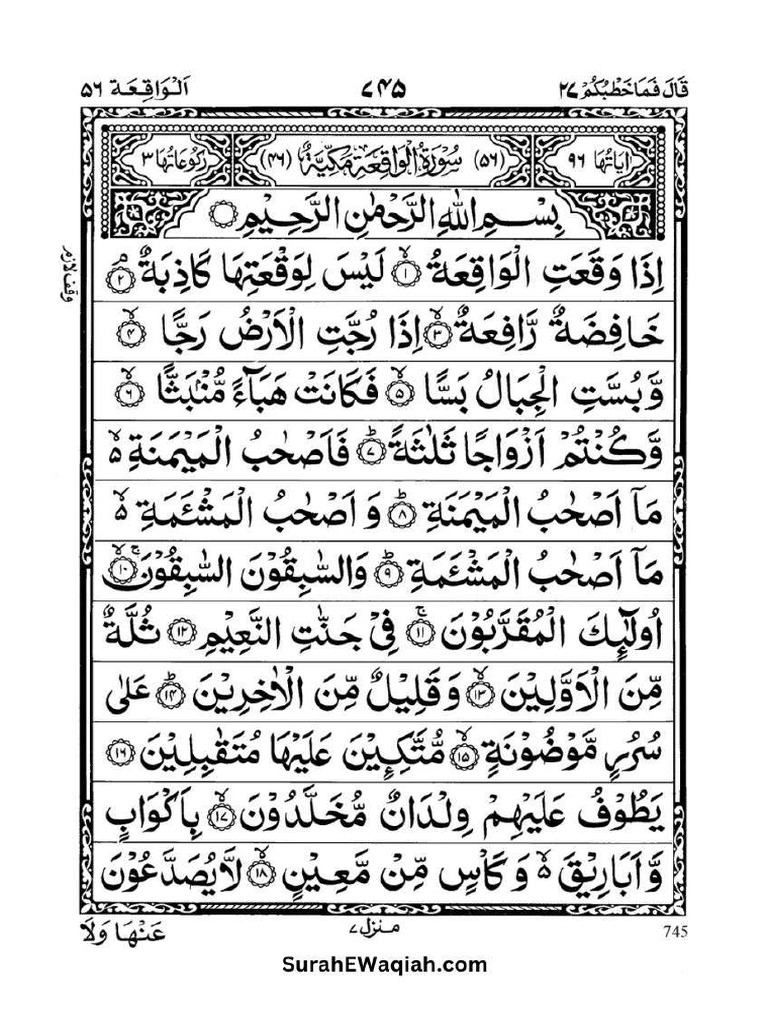 قَالَ فَمَا خَطْبُكُمْ ٢٧ ٧٤٥ اَلْوَاقِعَة ٥٦
اٰيَاتُهَا ٩٦ (٥٦) سُوْرَةُ الْوَاقِعَةِ مَكِّيَّةٌ (٤٦) رُكُوْعَاتُهَا ٣
بِسْمِ اللّٰهِ الرَّحْمٰنِ الرَّحِيْمِ
اِذَا وَقَعَتِ الْوَاقِعَةُ ۙ﴿١﴾ لَيْسَ لِوَقْعَتِهَا كَاذِبَةٌ ۘ﴿٢﴾
وقف لازم
خَافِضَةٌ رَّافِعَةٌ ۙ﴿٣﴾ اِذَا رُجَّتِ الْاَرْضُ رَجًّا ۙ﴿٤﴾
وَّبُسَّتِ الْجِبَالُ بَسًّا ۙ﴿٥﴾ فَكَانَتْ هَبَآءً مُّنْۢبَثًّا ۙ﴿٦﴾
وَّكُنْتُمْ اَزْوَاجًا ثَلٰثَةً ؕ﴿٧﴾ فَاَصْحٰبُ الْمَيْمَنَةِ ۵
مَاۤ اَصْحٰبُ الْمَيْمَنَةِ ؕ﴿٨﴾ وَ اَصْحٰبُ الْمَشْـَٔمَةِ ۵
مَاۤ اَصْحٰبُ الْمَشْـَٔمَةِ ؕ﴿٩﴾ وَالسّٰبِقُوْنَ السّٰبِقُوْنَ ۚۙ﴿١٠﴾
اُولٰٓئِكَ الْمُقَرَّبُوْنَ ۚ﴿١١﴾ فِيْ جَنّٰتِ النَّعِيْمِ ﴿١٢﴾ ثُلَّةٌ
مِّنَ الْاَوَّلِيْنَ ۙ﴿١٣﴾ وَقَلِيْلٌ مِّنَ الْاٰخِرِيْنَ ؕ﴿١٤﴾ عَلٰى
سُرُرٍ مَّوْضُوْنَةٍ ۙ﴿١٥﴾ مُّتَّكِـِٕيْنَ عَلَيْهَا مُتَقٰبِلِيْنَ ﴿١٦﴾
يَطُوْفُ عَلَيْهِمْ وِلْدَانٌ مُّخَلَّدُوْنَ ۙ﴿١٧﴾ بِاَكْوَابٍ
وَّاَبَارِيْقَ ۵ وَكَاْسٍ مِّنْ مَّعِيْنٍ ۙ﴿١٨﴾ لَّا يُصَدَّعُوْنَ
745 منزل ٧ عَنْهَا وَلَا
SurahEWaqiah.com